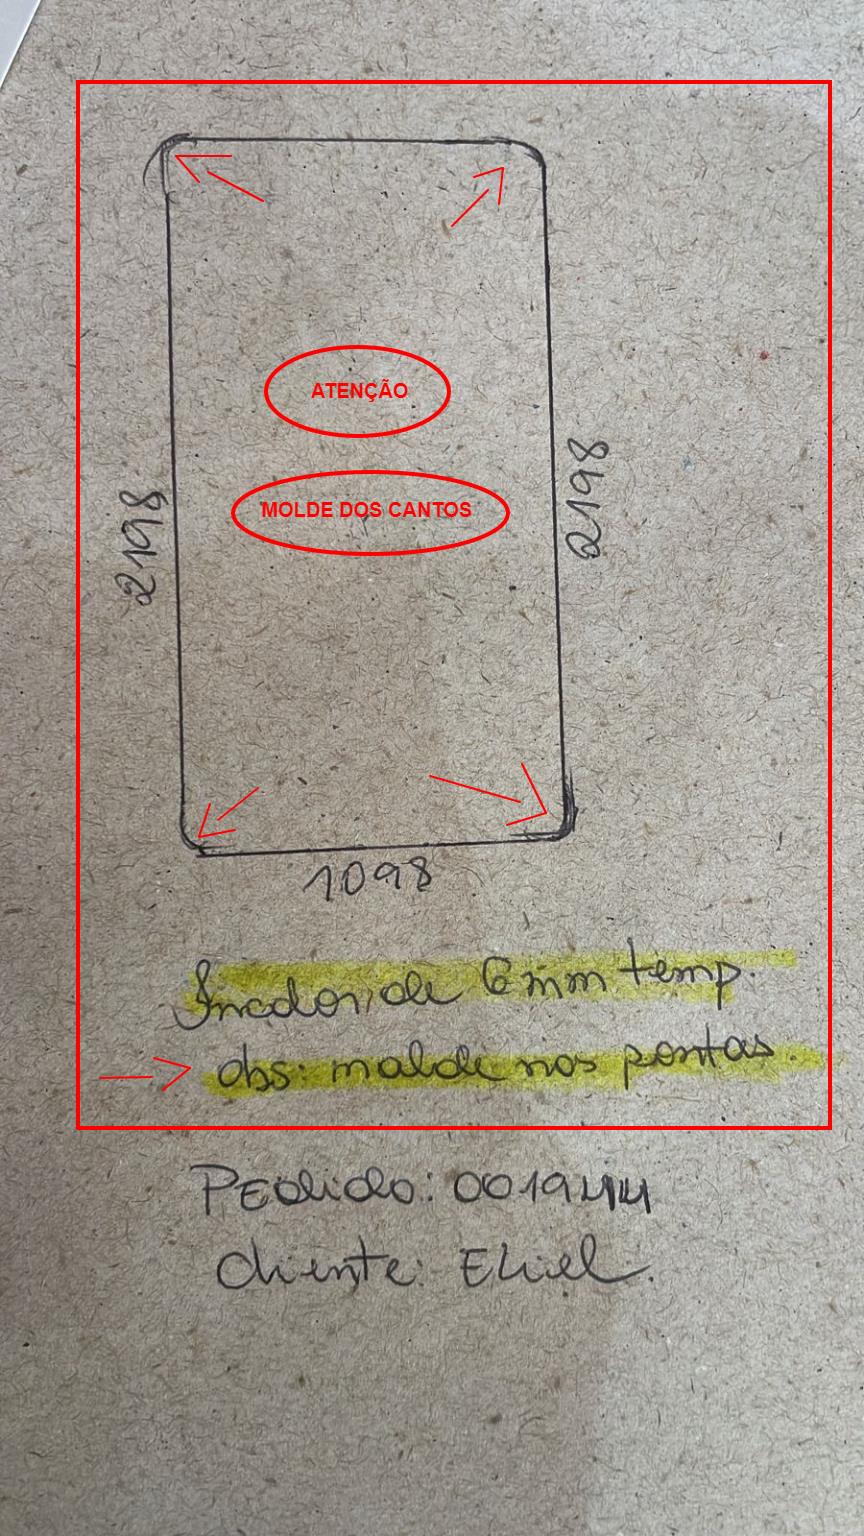 ATENÇÃO
MOLDE DOS CANTOS
2198
2198
1098
Incolor de 6mm temp.
obs: molde nas pontas.
Pedido: 001944
cliente: Eliel.